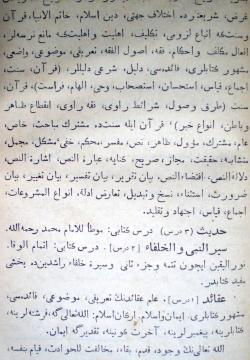 عرض، شریعتزده اختلاف جهتی، دین اسلام، خاتم الانبیا، قرآن
وسنتكه اتباع لزومی، تکلیف، اهلیت واهلیتكه مانع نرسه‌لر،
افعال مکلف واحکام، فقه، اصول الفقه، تعریفی، موضوعی، واضعی
مشهور کتابلری، فائده‌سی، دلیل، شرعی دلیللر، (قرآن، سنت،
اجماع، قیاس، استحسان، استصحاب، وحی، الهام، فراست)، قرآن،
سنت (طرق وصول، شرائط راوی، فقه راوی، انقطاع ظاهر
وباطن، انواع خبر) ، قرآن ایله سنت‌ده مشترك مباحث، خاص،
عام، مشترك، مؤول، ظاهر، نص، مفسر، محکم، خفی، مشکل، مجمل،
متشابه، حقیقت، مجاز، صریح، کنایه، عبارة النص، اشارة النص،
دلالة النص، اقتضاء النص، بیان تقریر، بیان تفسیر، بیان تغییر، بیان
ضرورت، استثناء، نسخ وتبدیل، تعارض ادلة، انواع المشروعات،
اجماع، قیاس، اجتهاد وتقلید.
حدیث (۳ درس) درس کتابی: موطأ للامام محمد رحمه‌الله.
سیر النبی والخلفاء (۲ درس) . درس کتابی: اتمام الوفا،
نور الیقین ایچون تتمه وجزء ثانی وسیرة خلفاء راشدین‌ده یخشی
مفید کتابدر.
عقائد (۱درس). علم عقائدنڭ تعریفی، موضوعی، فائده‌سی،
مشهور کتابلری. ایمان واسلام. ارکان اسلام: الله تعالی‌گه، فرشته‌لرینه،
کتابلرینه، پیغمبرلرینه، آخرت کونینه، تقدیرگه ایمان.
الله تعالی‌نڭ وجود، قدم، بقاء، مخالفت للحوادث، قیام بنفسه،